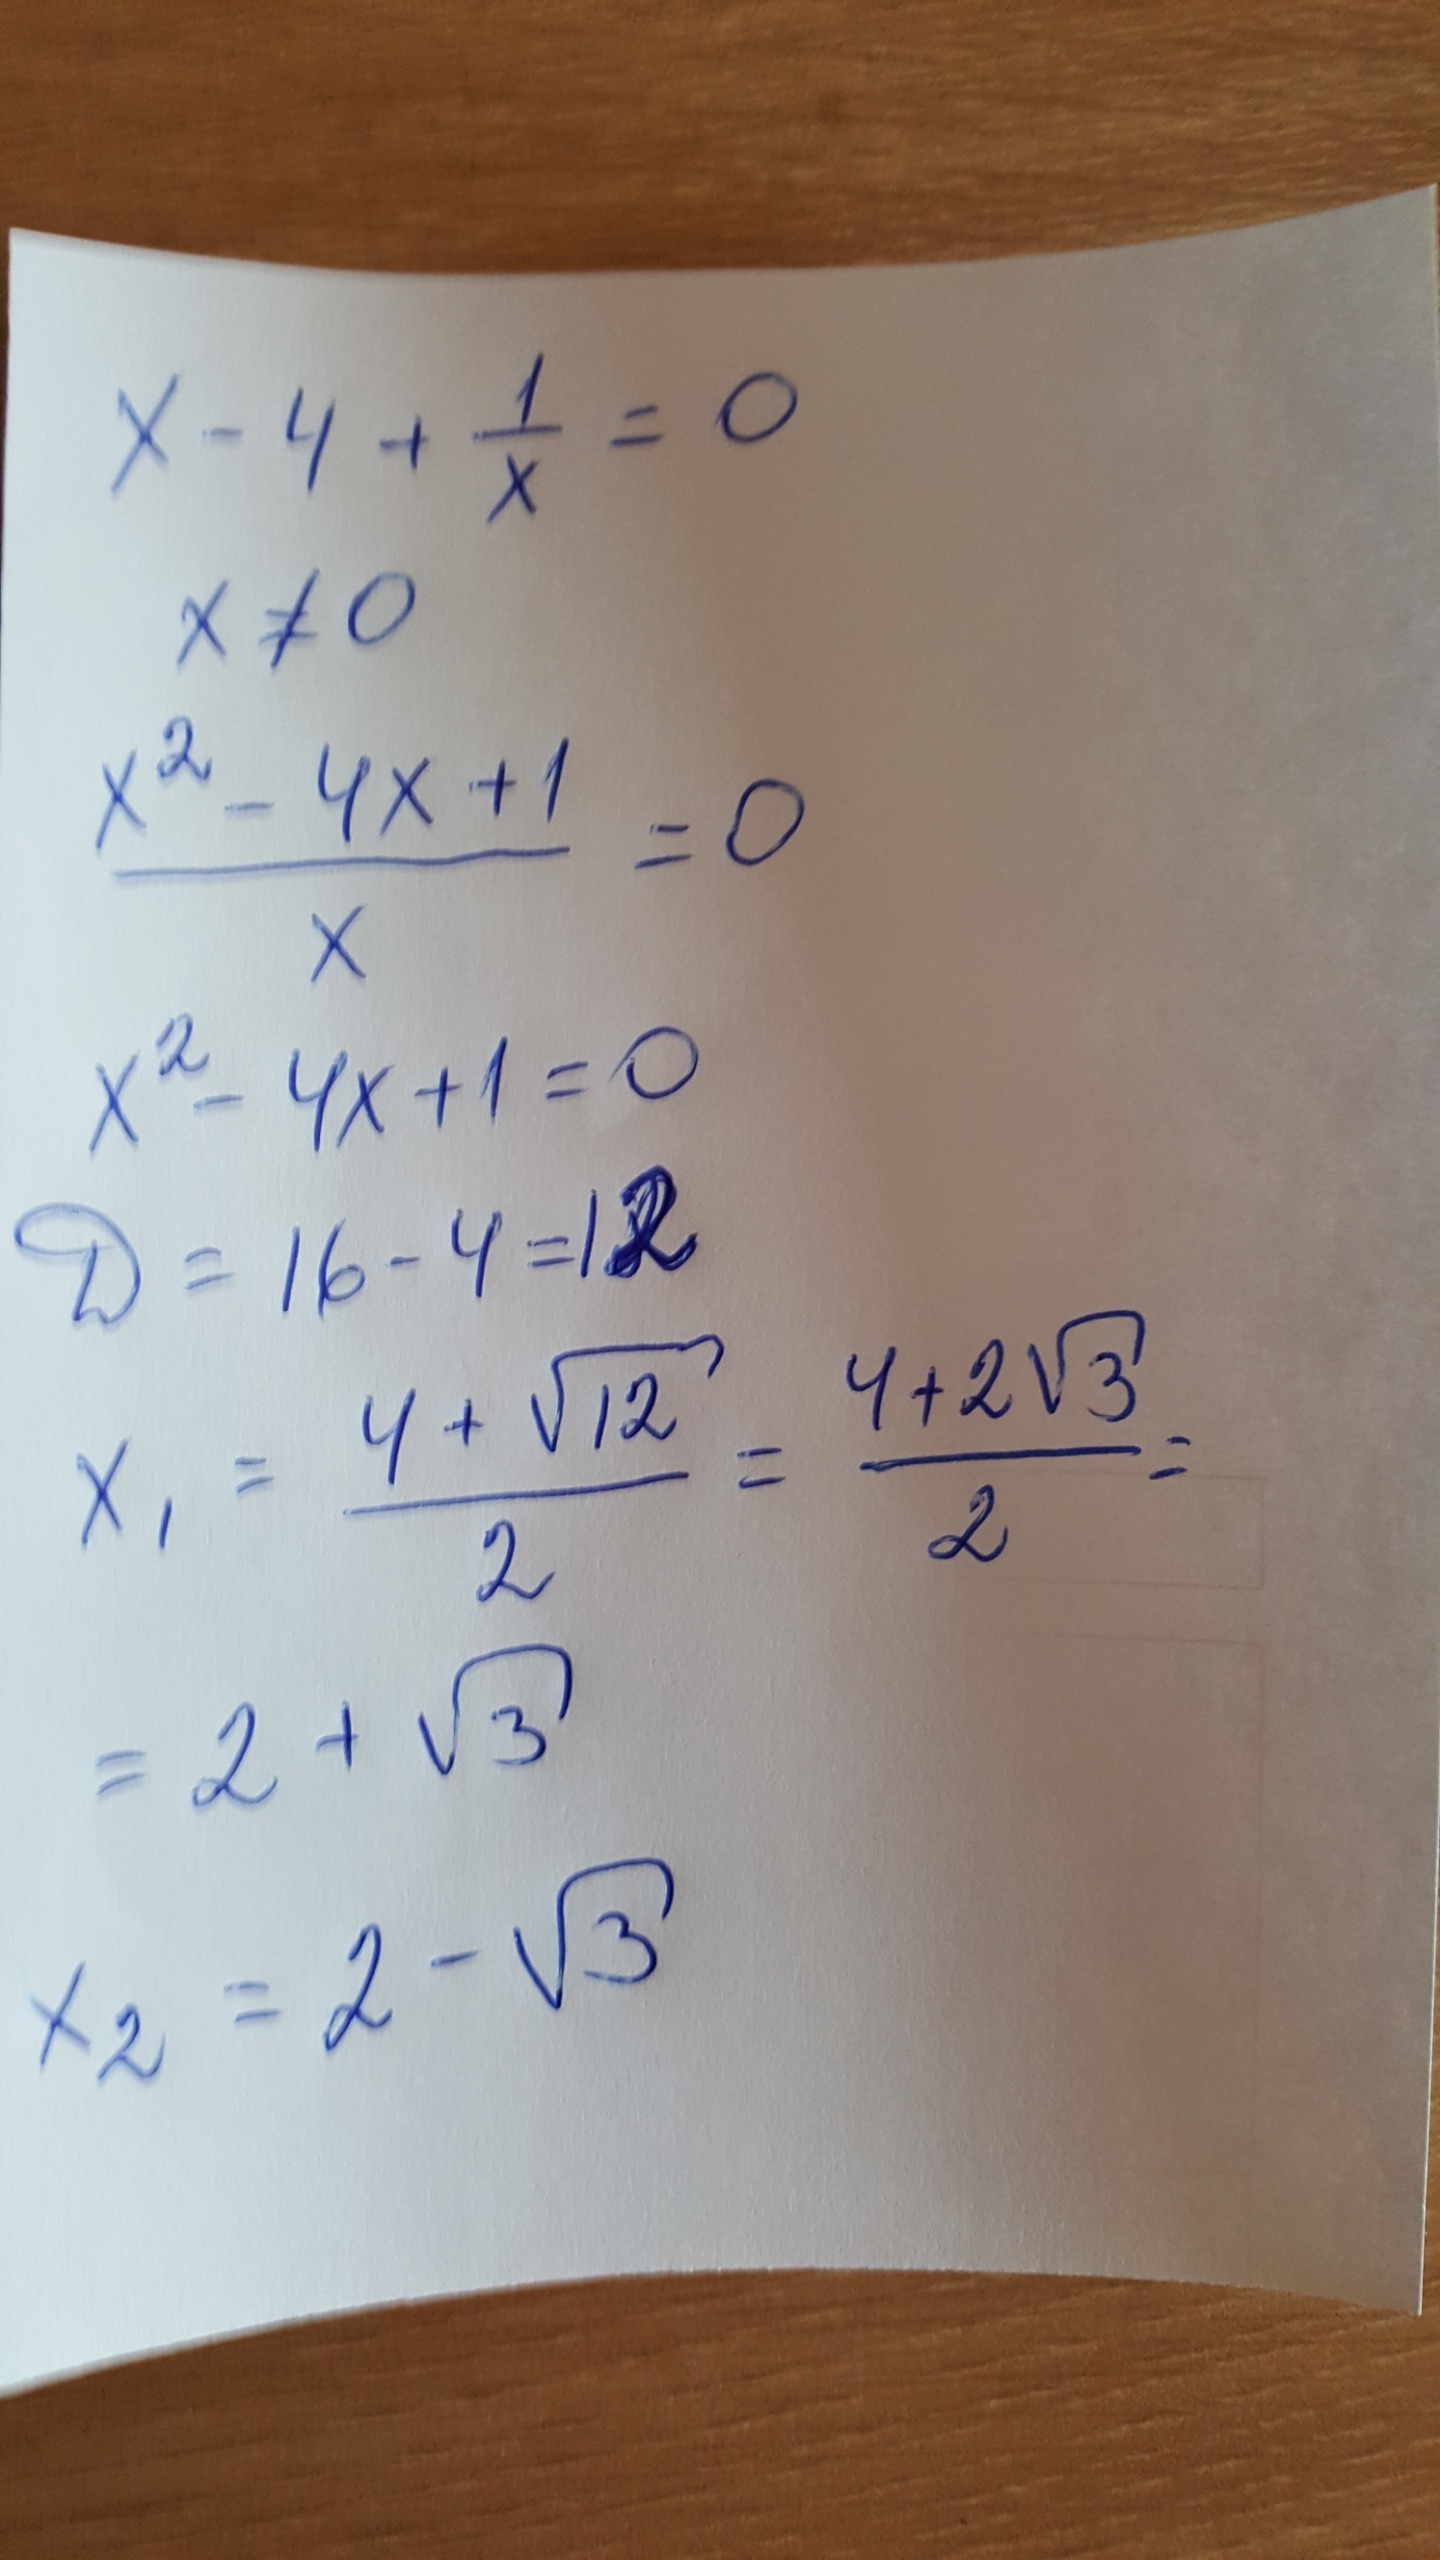 x - 4 + 1/x = 0
x ≠ 0
(x² - 4x + 1)/x = 0
x² - 4x + 1 = 0
D = 16 - 4 = 12
x₁ = (4 + √12)/2 = (4 + 2√3)/2 =
= 2 + √3
x₂ = 2 - √3